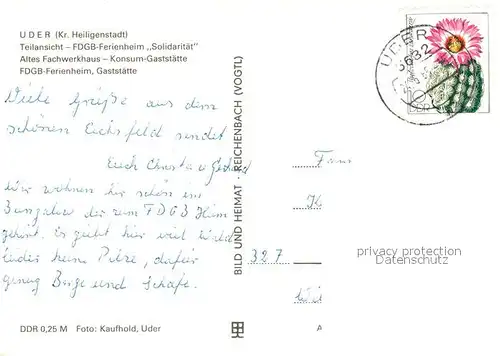 UDER (Kr. Heiligenstadt)
Teilansicht – FDGB-Ferienheim „Solidarität"
Altes Fachwerkhaus – Konsum-Gaststätte
FDGB-Ferienheim, Gaststätte
Viele Grüße aus dem
schönen Eichsfeld sendet
Euch Christa u Gerhard
Wir wohnen hir schön im
Bungalow der zum FDGB Heim
gehört. Es giebt hir viel Wald
leider keine Pilze, dafür
genug Berge und Schafe.
DDR 0,25 M Foto: Kaufhold, Uder
BILD UND HEIMAT · REICHENBACH (VOGTL)
UDER
5632
10
DDR
Fam
327
privacy protection
Datenschutz
A